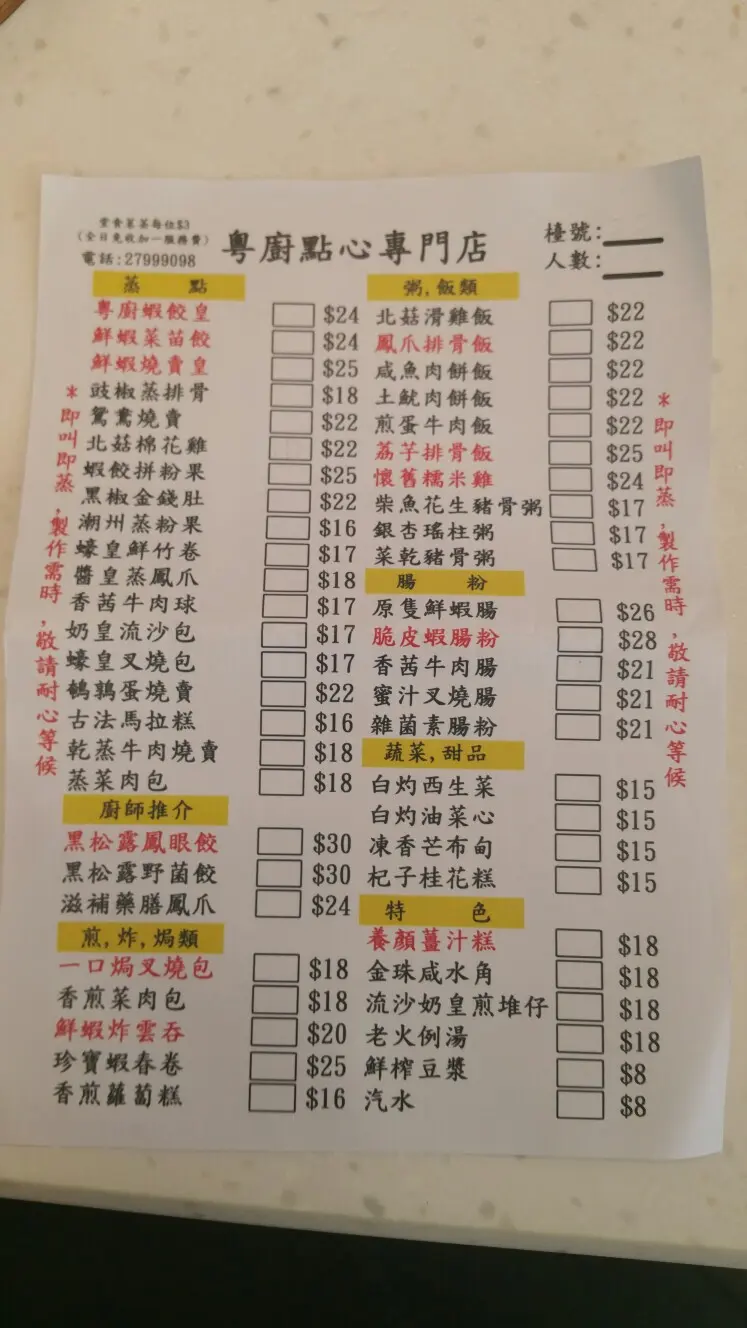 堂食茗茶每位$3
(全日免收加一服務費)
電話:27999098
粵廚點心專門店
檯號:
人數:
蒸 點
粵廚蝦餃皇 $24
鮮蝦菜苗餃 $24
鮮蝦燒賣皇 $25
豉椒蒸排骨 $18
鴛鴦燒賣 $22
北菇棉花雞 $22
蝦餃拼粉果 $25
黑椒金錢肚 $22
潮州蒸粉果 $16
蠔皇鮮竹卷 $17
醬皇蒸鳳爪 $18
香茜牛肉球 $17
奶皇流沙包 $17
蠔皇叉燒包 $17
鵪鶉蛋燒賣 $22
古法馬拉糕 $16
乾蒸牛肉燒賣 $18
蒸菜肉包 $18
廚師推介
黑松露鳳眼餃 $30
黑松露野菌餃 $30
滋補藥膳鳳爪 $24
煎,炸,焗類
一口焗叉燒包 $18
香煎菜肉包 $18
鮮蝦炸雲吞 $20
珍寶蝦春卷 $25
香煎蘿蔔糕 $16
*即叫即蒸,製作需時,敬請耐心等候
粥,飯類
北菇滑雞飯 $22
鳳爪排骨飯 $22
咸魚肉餅飯 $22
土魷肉餅飯 $22
煎蛋牛肉飯 $22
荔芋排骨飯 $25
懷舊糯米雞 $24
柴魚花生豬骨粥 $17
銀杏瑤柱粥 $17
菜乾豬骨粥 $17
腸 粉
原隻鮮蝦腸 $26
脆皮蝦腸粉 $28
香茜牛肉腸 $21
蜜汁叉燒腸 $21
雜菌素腸粉 $21
蔬菜,甜品
白灼西生菜 $15
白灼油菜心 $15
凍香芒布甸 $15
杞子桂花糕 $15
特 色
養顏薑汁糕 $18
金珠咸水角 $18
流沙奶皇煎堆仔 $18
老火例湯 $18
鮮榨豆漿 $8
汽水 $8
*即叫即蒸,製作需時,敬請耐心等候